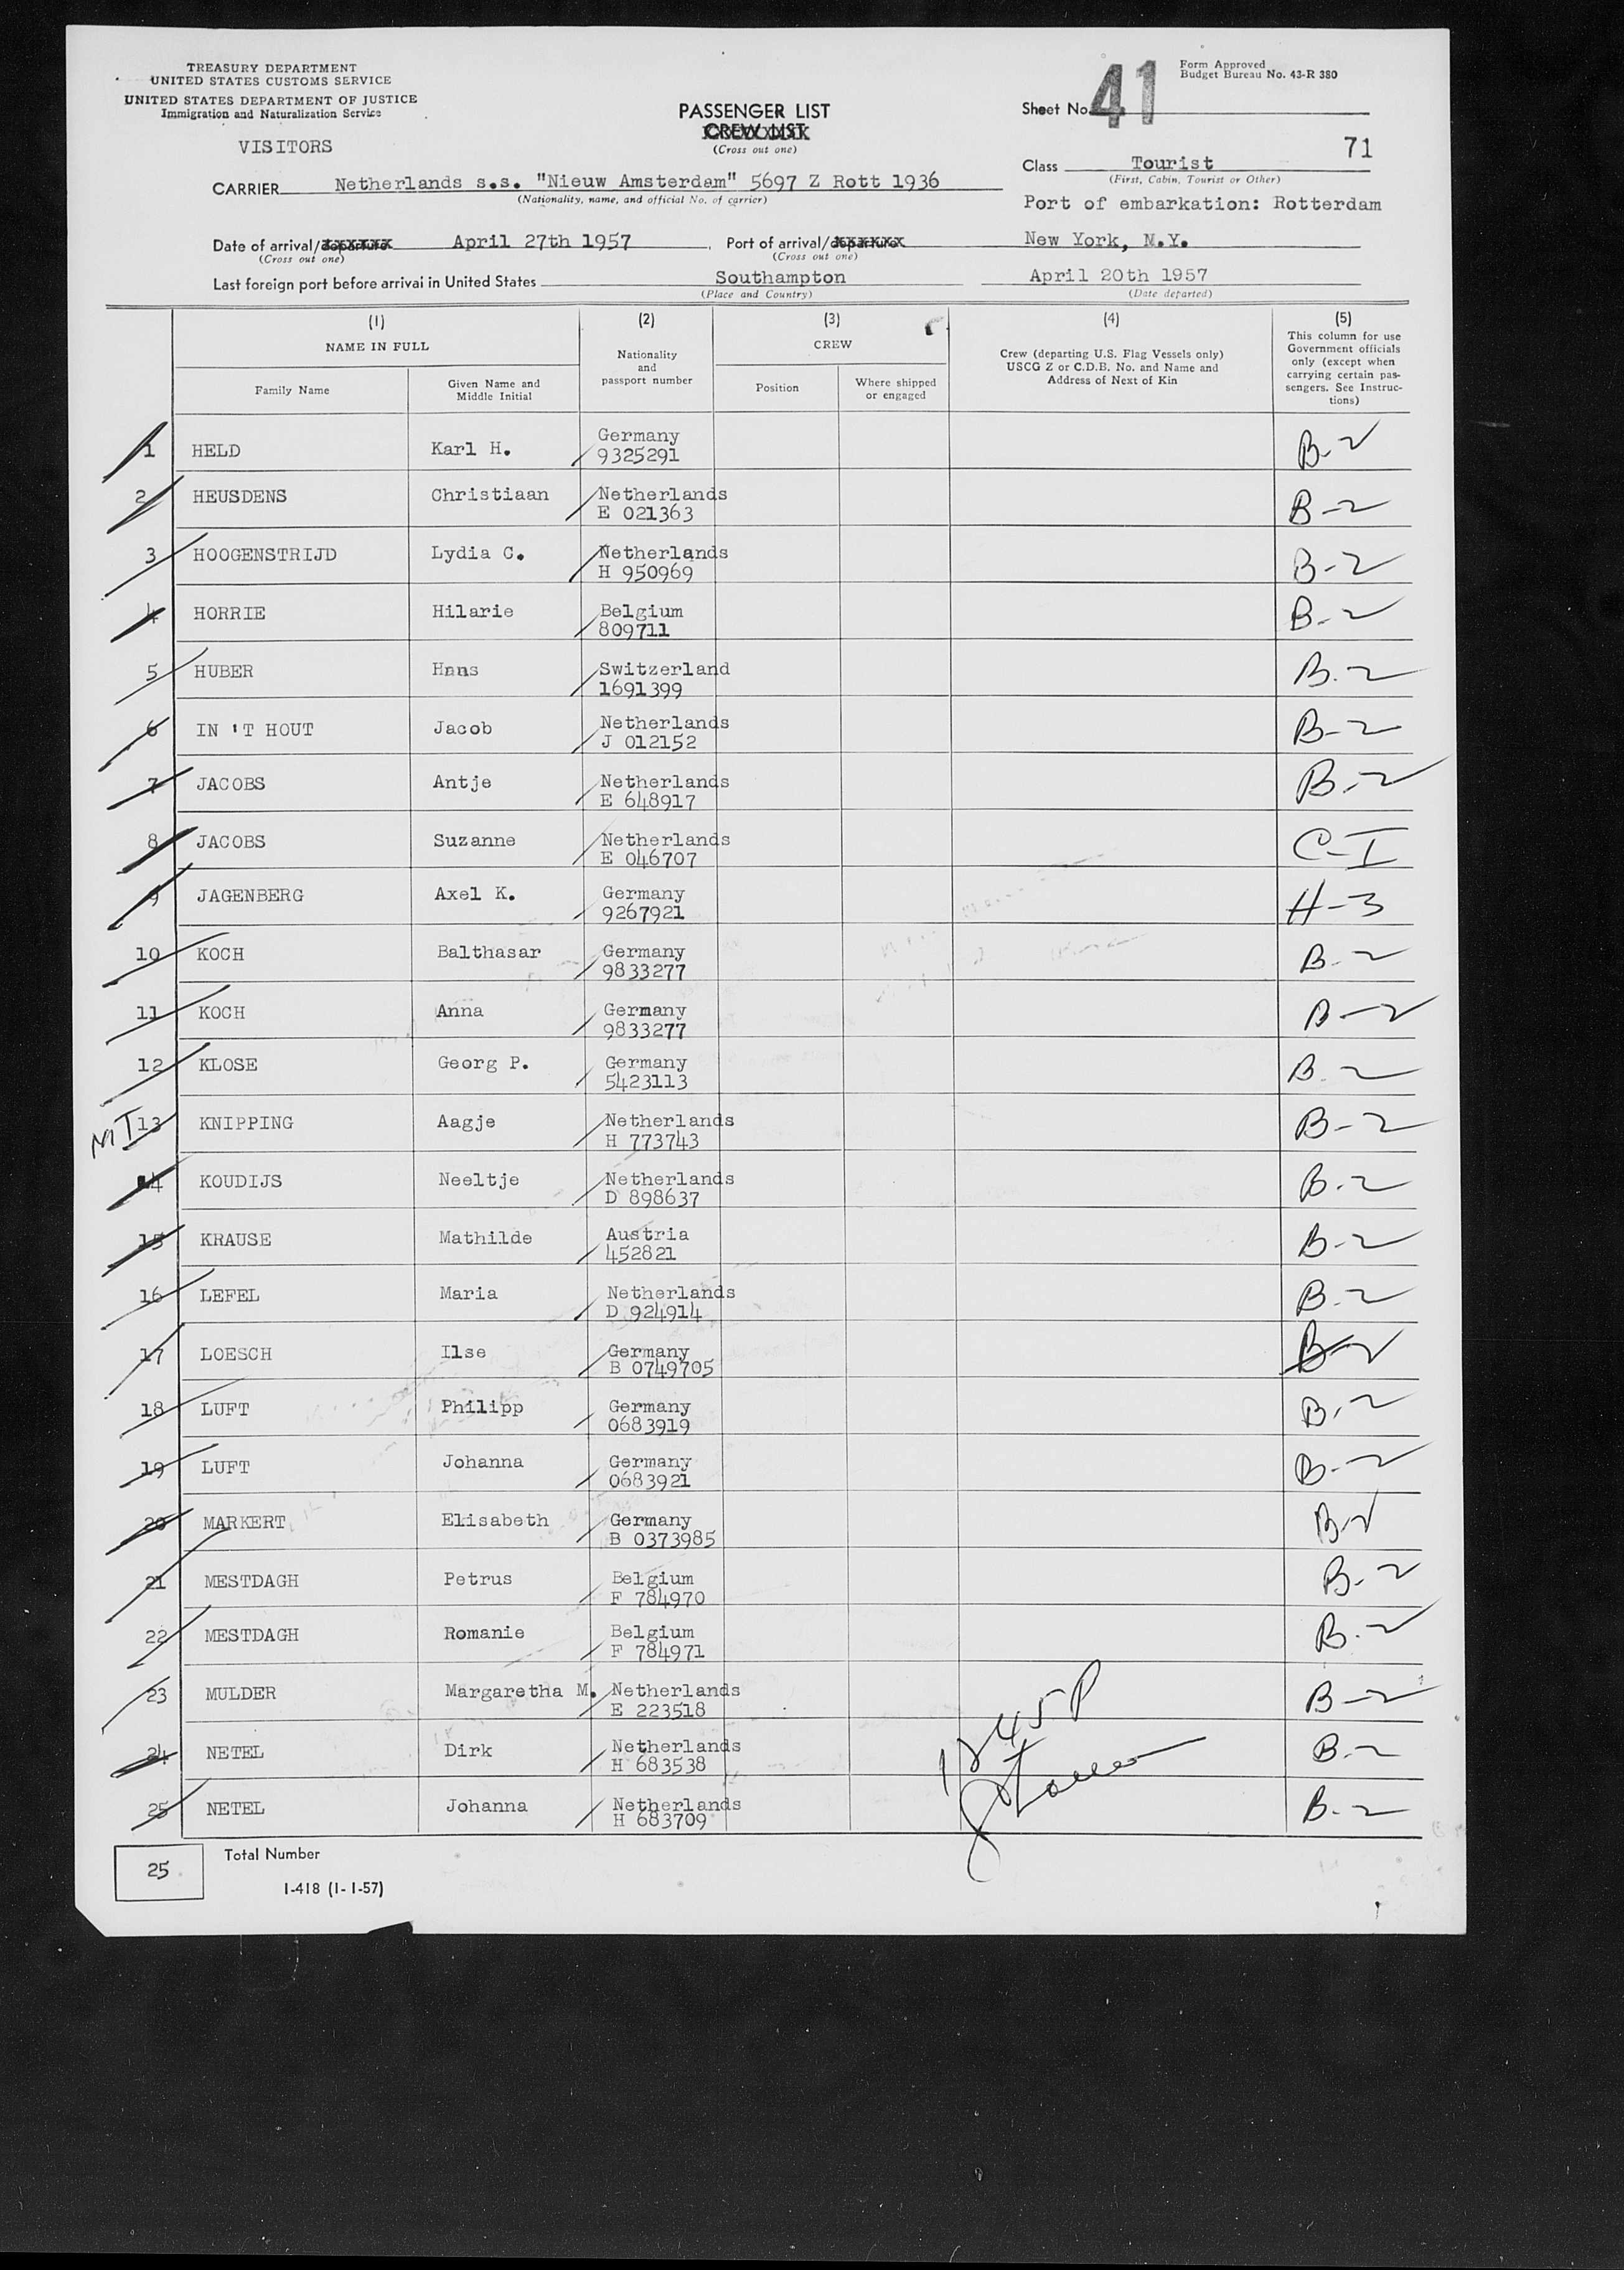 TREASURY DEPARTMENT
UNITED STATES CUSTOMS SERVICE
UNITED STATES DEPARTMENT OF JUSTICE
Immigration and Naturalization Service
VISITORS
PASSENGER LIST
CREW LIST
(Cross out one)
Form Approved
Budget Bureau No. 43-R 380
Sheet No. 41
71
Class Tourist
(First, Cabin, Tourist or Other)
CARRIER Netherlands s.s. "Nieuw Amsterdam" 5697 Z Rott 1936
(Nationality, name, and official No. of carrier)
Port of embarkation: Rotterdam
Date of arrival/departure April 27th 1957, Port of arrival/departure New York, N.Y.
(Cross out one) (Cross out one)
Last foreign port before arrival in United States Southampton April 20th 1957
(Place and Country) (Date departed)
(1) (2) (3) (4) (5)
NAME IN FULL
Family Name
Given Name and Middle Initial
Nationality and passport number
CREW
Position
Where shipped or engaged
Crew (departing U.S. Flag Vessels only)
USCG Z or C.D.B. No. and Name and
Address of Next of Kin
This column for use
Government officials
only (except when
carrying certain pas-
sengers. See Instruc-
tions)
1 HELD Karl H. Germany 9325291 B-2
2 HEUSDENS Christiaan Netherlands E 021363 B-2
3 HOOGENSTRIJD Lydia C. Netherlands H 950969 B-2
4 HORRIE Hilarie Belgium 809711 B-2
5 HUBER Hans Switzerland 1691399 B-2
6 IN 'T HOUT Jacob Netherlands J 012152 B-2
7 JACOBS Antje Netherlands E 648917 B-2
8 JACOBS Suzanne Netherlands E 046707 C-I
9 JAGENBERG Axel K. Germany 9267921 H-3
10 KOCH Balthasar Germany 9833277 B-2
11 KOCH Anna Germany 9833277 B-2
12 KLOSE Georg P. Germany 5423113 B-2
MI 13 KNIPPING Aagje Netherlands H 773743 B-2
14 KOUDIJS Neeltje Netherlands D 898637 B-2
15 KRAUSE Mathilde Austria 452821 B-2
16 LEFEL Maria Netherlands D 924914 B-2
17 LOESCH Ilse Germany B 0749705 B-2
18 LUFT Philipp Germany 0683919 B-2
19 LUFT Johanna Germany 0683921 B-2
20 MARKERT Elisabeth Germany B 0373985 B-2
21 MESTDAGH Petrus Belgium F 784970 B-2
22 MESTDAGH Romanie Belgium F 784971 B-2
23 MULDER Margaretha M. Netherlands E 223518 B-2
24 NETEL Dirk Netherlands H 683538 B-2
25 NETEL Johanna Netherlands H 683709 B-2
1245P
25
Total Number
I-418 (1-1-57)